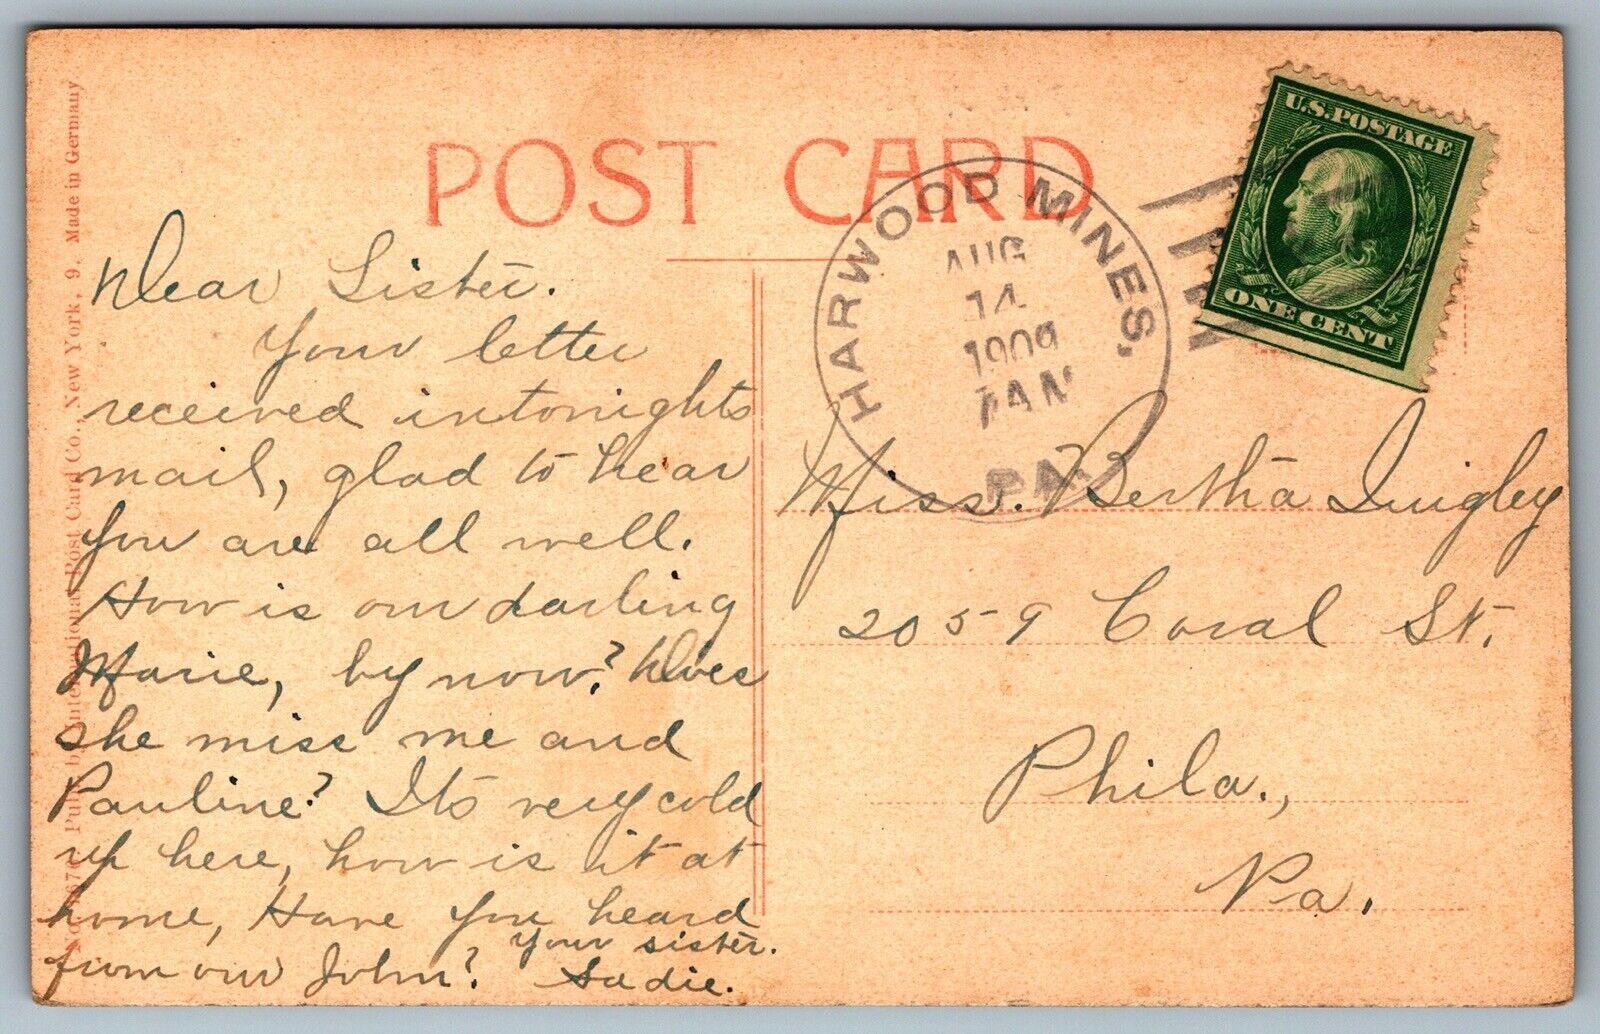 POST CARD
U.S. POSTAGE
ONE CENT
HARWOOD MINES,
AUG
14
1909
7 AM
PA.
Dear Sister.
Your letter
received intonights
mail, glad to hear
you are all well.
How is our darling
Marie, by now? Does
she miss me and
Pauline? Its very cold
up here, how is it at
home, Have you heard
from our John?
your sister.
Sadie.
Miss. Bertha Quigley
2059 Coral St.
Phila.,
Pa.
Pub. by International Post Card Co., New York, 9. Made in Germany